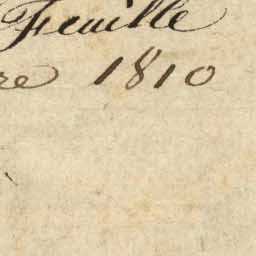 Feuille
re 1810